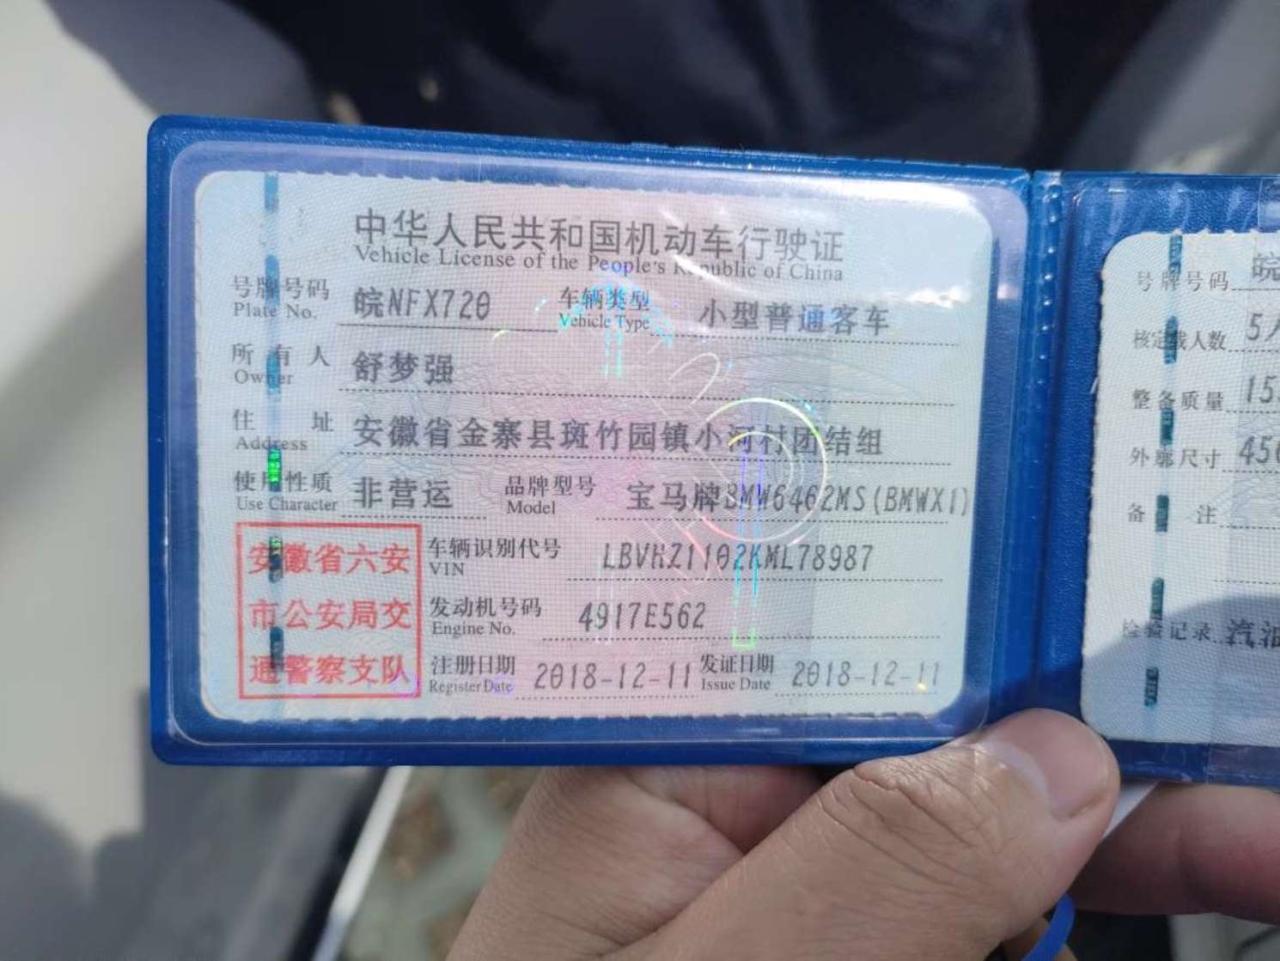 中华人民共和国机动车行驶证
Vehicle License of the People's Republic of China
号牌号码 皖NFX720 车辆类型 小型普通客车
Plate No. Vehicle Type
所有人 舒梦强
Owner
住址 安徽省金寨县斑竹园镇小河村团结组
Address
使用性质 非营运 品牌型号 宝马牌BMW6462MS(BMWX1)
Use Character Model
安徽省六安
市公安局交
通警察支队
车辆识别代号 LBVHZ1102KML78987
VIN
发动机号码 4917E562
Engine No.
注册日期 2018-12-11 发证日期 2018-12-11
Register Date Issue Date
号牌号码 皖
核定载人数 5人
整备质量 15
外廓尺寸 456
备注
检验记录 汽油